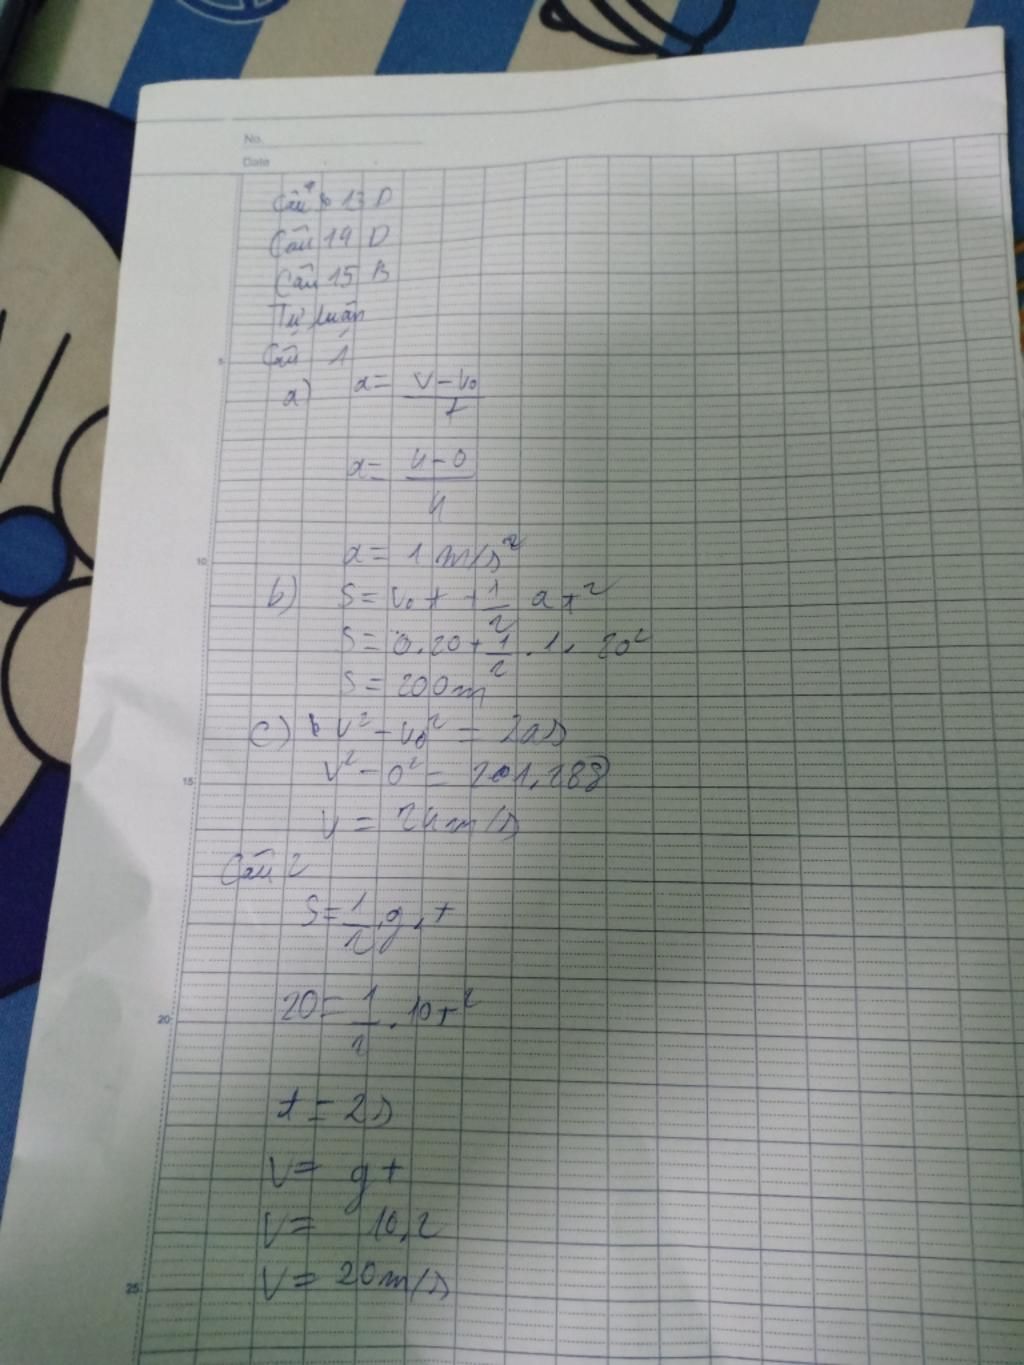 No.
Date
Câu 13 D
Câu 14 D
Câu 15 B
Tự luận
Câu 1
a) a = \frac{v - v₀}{t}
a = \frac{4 - 0}{4}
5
a = 1 m/s²
10
b) S = v₀ t + \frac{1}{2} a t²
S = 0.20 + \frac{1}{2} . 1 . 20²
S = 200m
c) v² - v₀² = 2as
v² - 0² = 2.1.288
15
v = 24m/s
Câu 2
S = \frac{1}{2} . g . t
20 = \frac{1}{2} . 10 t²
20
t = 2s
v = gt
v = 10.2
v = 20m/s
25